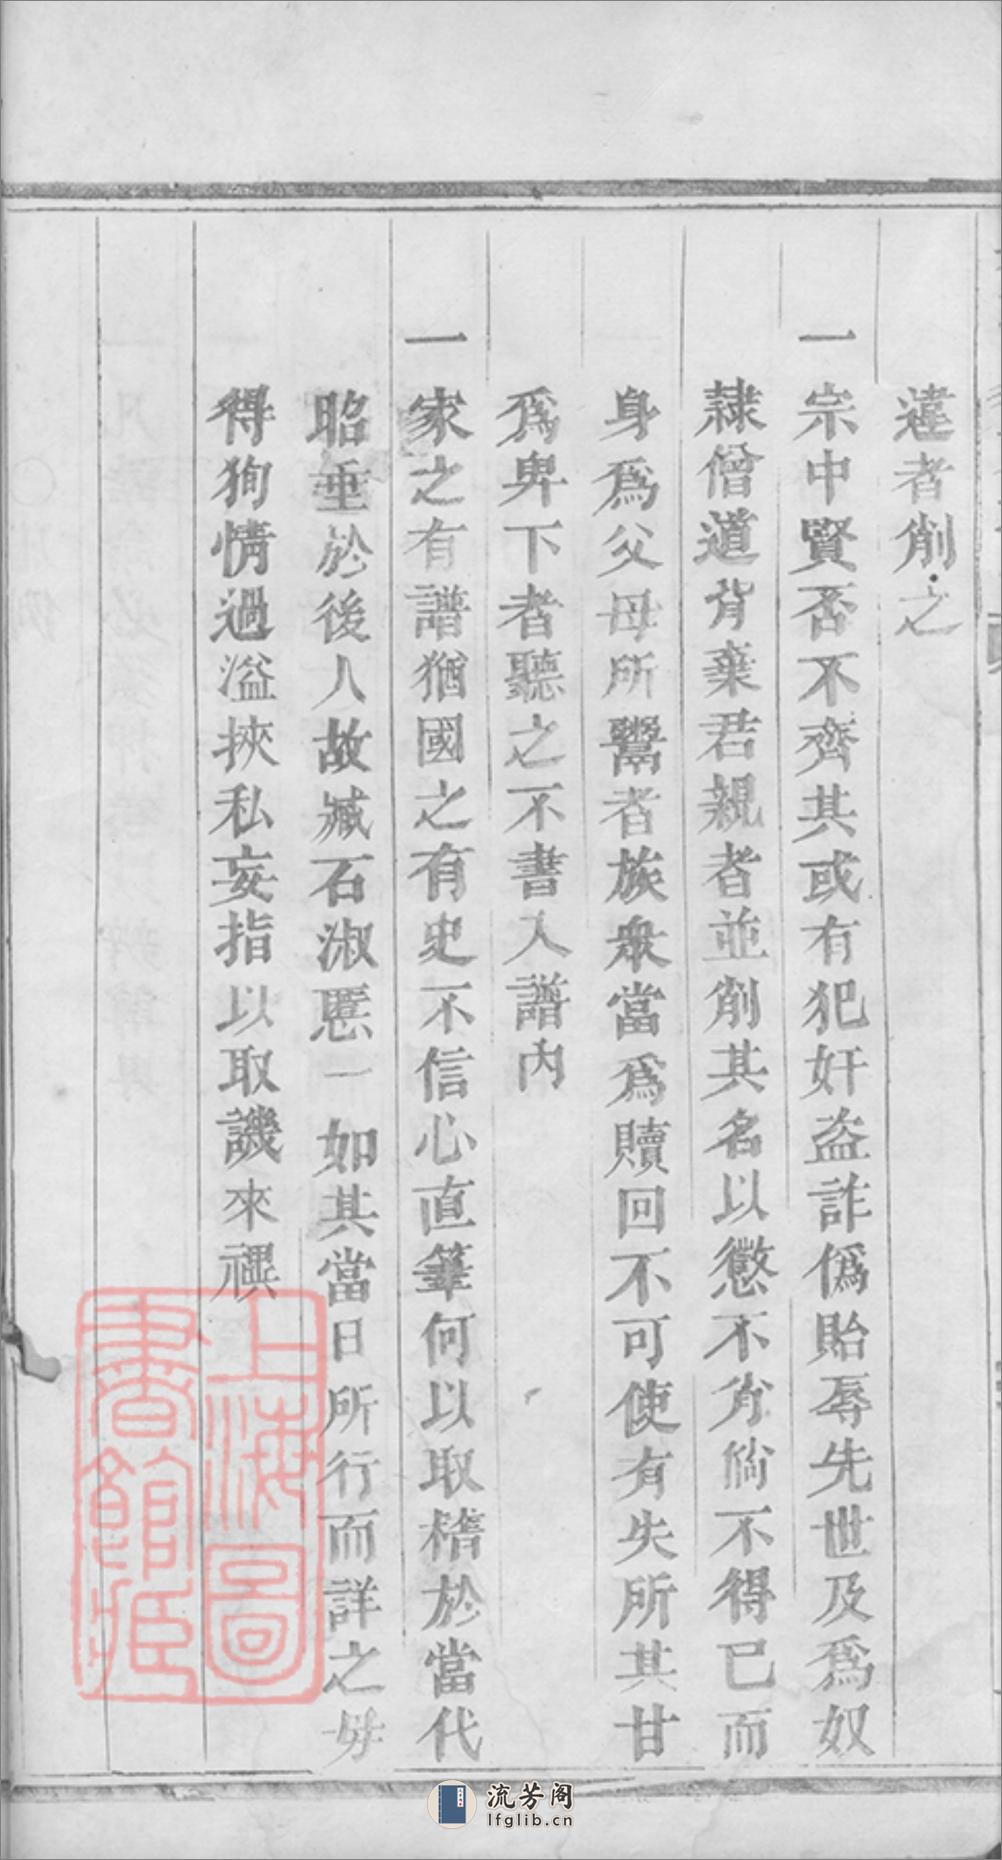 違者削之
一宗中賢否不齊其或有犯奸盜詐僞貽辱先世及爲奴
隸僧道背棄君親者並削其名以懲不肖倘不得已而
身爲父母所鬻者族衆當爲贖回不可使有失所其甘
爲卑下者聽之不書入譜內
一家之有譜猶國之有史不信心直筆何以取稽於當代
昭垂於後人故臧石淑慝一如其當日所行而詳之毋
得狥情過溢挾私妄指以取譏來禩
上海圖書館藏
流芳阁
lfglib.cn